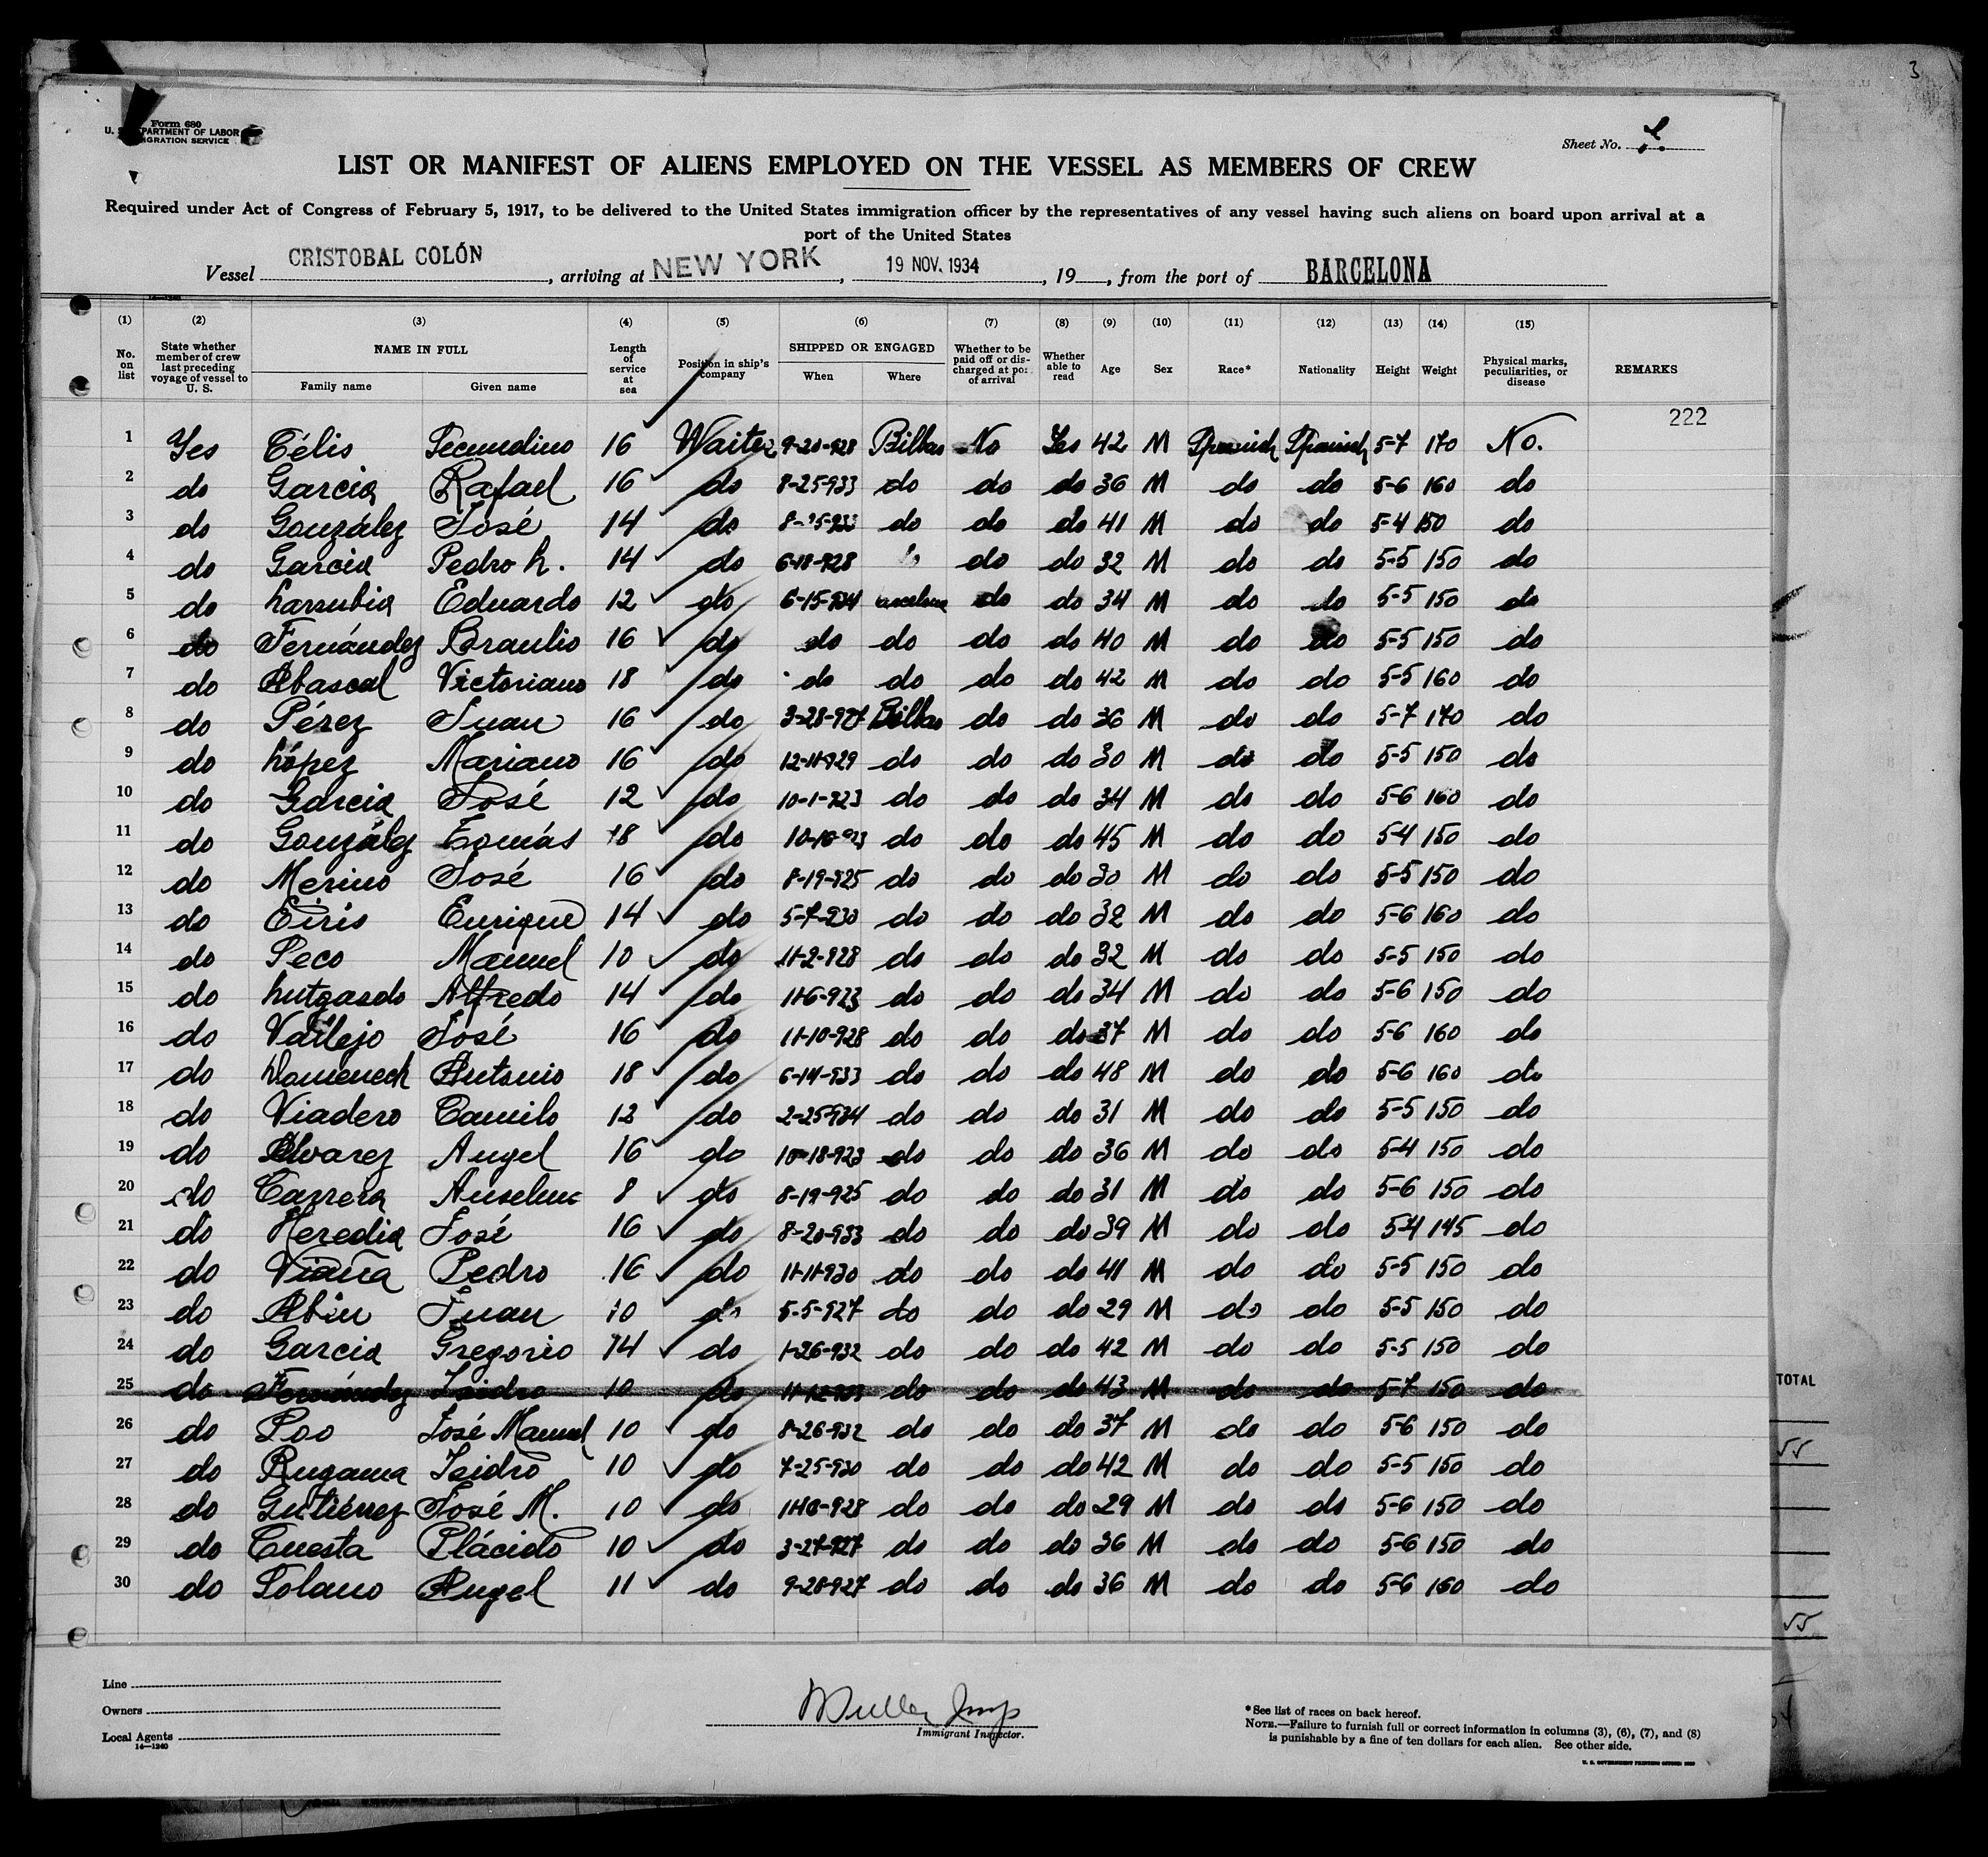 3
Form 680
U. S. DEPARTMENT OF LABOR
IMMIGRATION SERVICE
Sheet No.
LIST OR MANIFEST OF ALIENS EMPLOYED ON THE VESSEL AS MEMBERS OF CREW
Required under Act of Congress of February 5, 1917, to be delivered to the United States immigration officer by the representatives of any vessel having such aliens on board upon arrival at a
port of the United States
Vessel CRISTOBAL COLÓN, arriving at NEW YORK, 19 NOV. 1934, 19, from the port of BARCELONA
(1) (2) (3) (4) (5) (6) (7) (8) (9) (10) (11) (12) (13) (14) (15)
No. on list State whether member of crew last preceding voyage of vessel to U. S. NAME IN FULL Family name Given name Length of service at sea Position in ship's company SHIPPED OR ENGAGED When Where Whether to be paid off or discharged at port of arrival Whether able to read Age Sex Race* Nationality Height Weight Physical marks, peculiarities, or disease REMARKS
222
1 Yes Célis Secundino 16 Waiter 9-20-928 Bilbao No Yes 42 M Spanish Spanish 5-7 170 No.
2 do Garcia Rafael 16 do 8-25-933 do do do 36 M do do 5-6 160 do
3 do González José 14 do do do do 41 M do do 5-4 150 do
4 do Garcia Pedro L. 14 do 6-18-928 do do 32 M do do 5-5 150 do
5 do Larrubia Eduardo 12 do 6-15-934 arcelona do do 34 M do do 5-5 150 do
6 do Fernández Braulio 16 do do do do do 40 M do do 5-5 150 do
7 do Abascal Victoriano 18 do do do do do 42 M do do 5-5 160 do
8 do Pérez Juan 16 do 3-28-927 Bilbao do do 36 M do do 5-7 170 do
9 do López Mariano 16 do 12-11-929 do do do 30 M do do 5-5 150 do
10 do Garcia José 12 do 10-1-923 do do do 34 M do do 5-6 160 do
11 do González Tomás 18 do 10-10-923 do do do 45 M do do 5-4 150 do
12 do Merino José 16 do 8-19-925 do do do 30 M do do 5-5 150 do
13 do Eiris Enrique 14 do 5-7-930 do do do 32 M do do 5-6 160 do
14 do Seco Manuel 10 do 11-2-928 do do do 32 M do do 5-5 150 do
15 do Lutgardo Alfredo 14 do 11-6-923 do do do 34 M do do 5-6 150 do
16 do Vallejo José 16 do 11-10-928 do do do 37 M do do 5-6 160 do
17 do Domenech Antonio 18 do 6-14-933 do do do 48 M do do 5-6 160 do
18 do Viadero Camilo 12 do 2-25-934 do do do 31 M do do 5-5 150 do
19 do Alvarez Angel 16 do 10-18-923 do do do 36 M do do 5-4 150 do
20 do Carrera Anselmo 8 do 8-19-925 do do do 31 M do do 5-6 150 do
21 do Heredia José 16 do 8-20-933 do do do 39 M do do 5-4 145 do
22 do Viaña Pedro 16 do 11-11-930 do do do 41 M do do 5-5 150 do
23 do Abin Juan 10 do 5-5-927 do do do 29 M do do 5-5 150 do
24 do Garcia Gregorio 14 do 1-26-932 do do do 42 M do do 5-5 150 do
25 do Fernández Isidro 10 do do do do 43 M do do 5-7 150 do
26 do Poo José Manuel 10 do 8-26-932 do do do 37 M do do 5-6 150 do
27 do Rugama Isidro 10 do 7-25-930 do do do 42 M do do 5-5 150 do
28 do Gutiérrez José M. 10 do do do do 29 M do do 5-6 150 do
29 do Cuesta Plácido 10 do 3-27-927 do do do 36 M do do 5-6 150 do
30 do Solano Angel 11 do 9-28-927 do do do 36 M do do 5-6 160 do
TOTAL
55
55
Line
Owners
Local Agents
14—1240
Immigrant Inspector.
*See list of races on back hereof.
NOTE.—Failure to furnish full or correct information in columns (3), (6), (7), and (8)
is punishable by a fine of ten dollars for each alien. See other side.